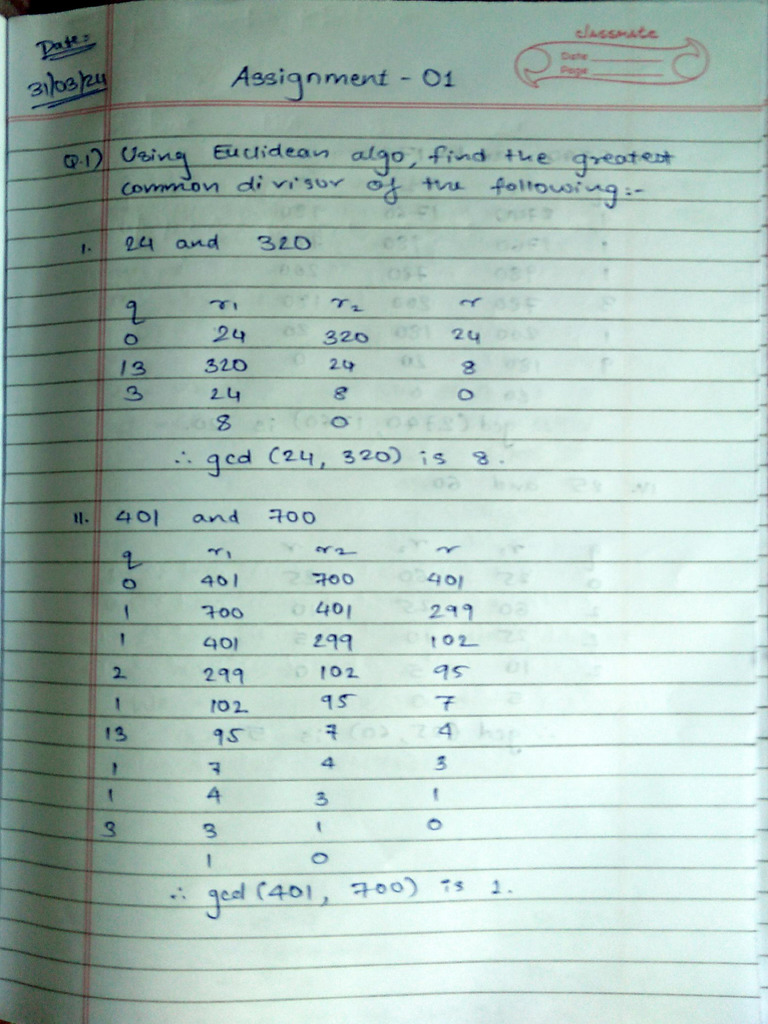 Date:
31/03/24
Assignment - 01
classmate
Date
Page
Q.1) Using Euclidean algo, find the greatest
common divisor of the following:-
I. 24 and 320
q r1 r2 r
0 24 320 24
13 320 24 8
3 24 8 0
8 0
∴ gcd (24, 320) is 8.
II. 401 and 700
q r1 r2 r
0 401 700 401
1 700 401 299
1 401 299 102
2 299 102 95
1 102 95 7
13 95 7 4
1 7 4 3
1 4 3 1
3 3 1 0
1 0
∴ gcd (401, 700) is 1.